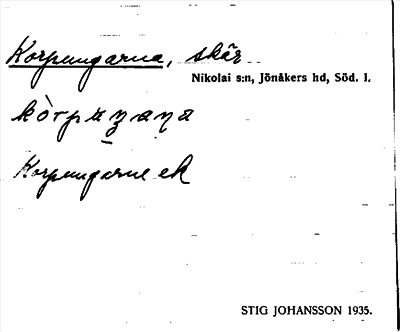 Korpungarna, skär
Nikolai s:n, Jönåkers hd, Söd. l.
Korpungarne ek
STIG JOHANSSON 1935.